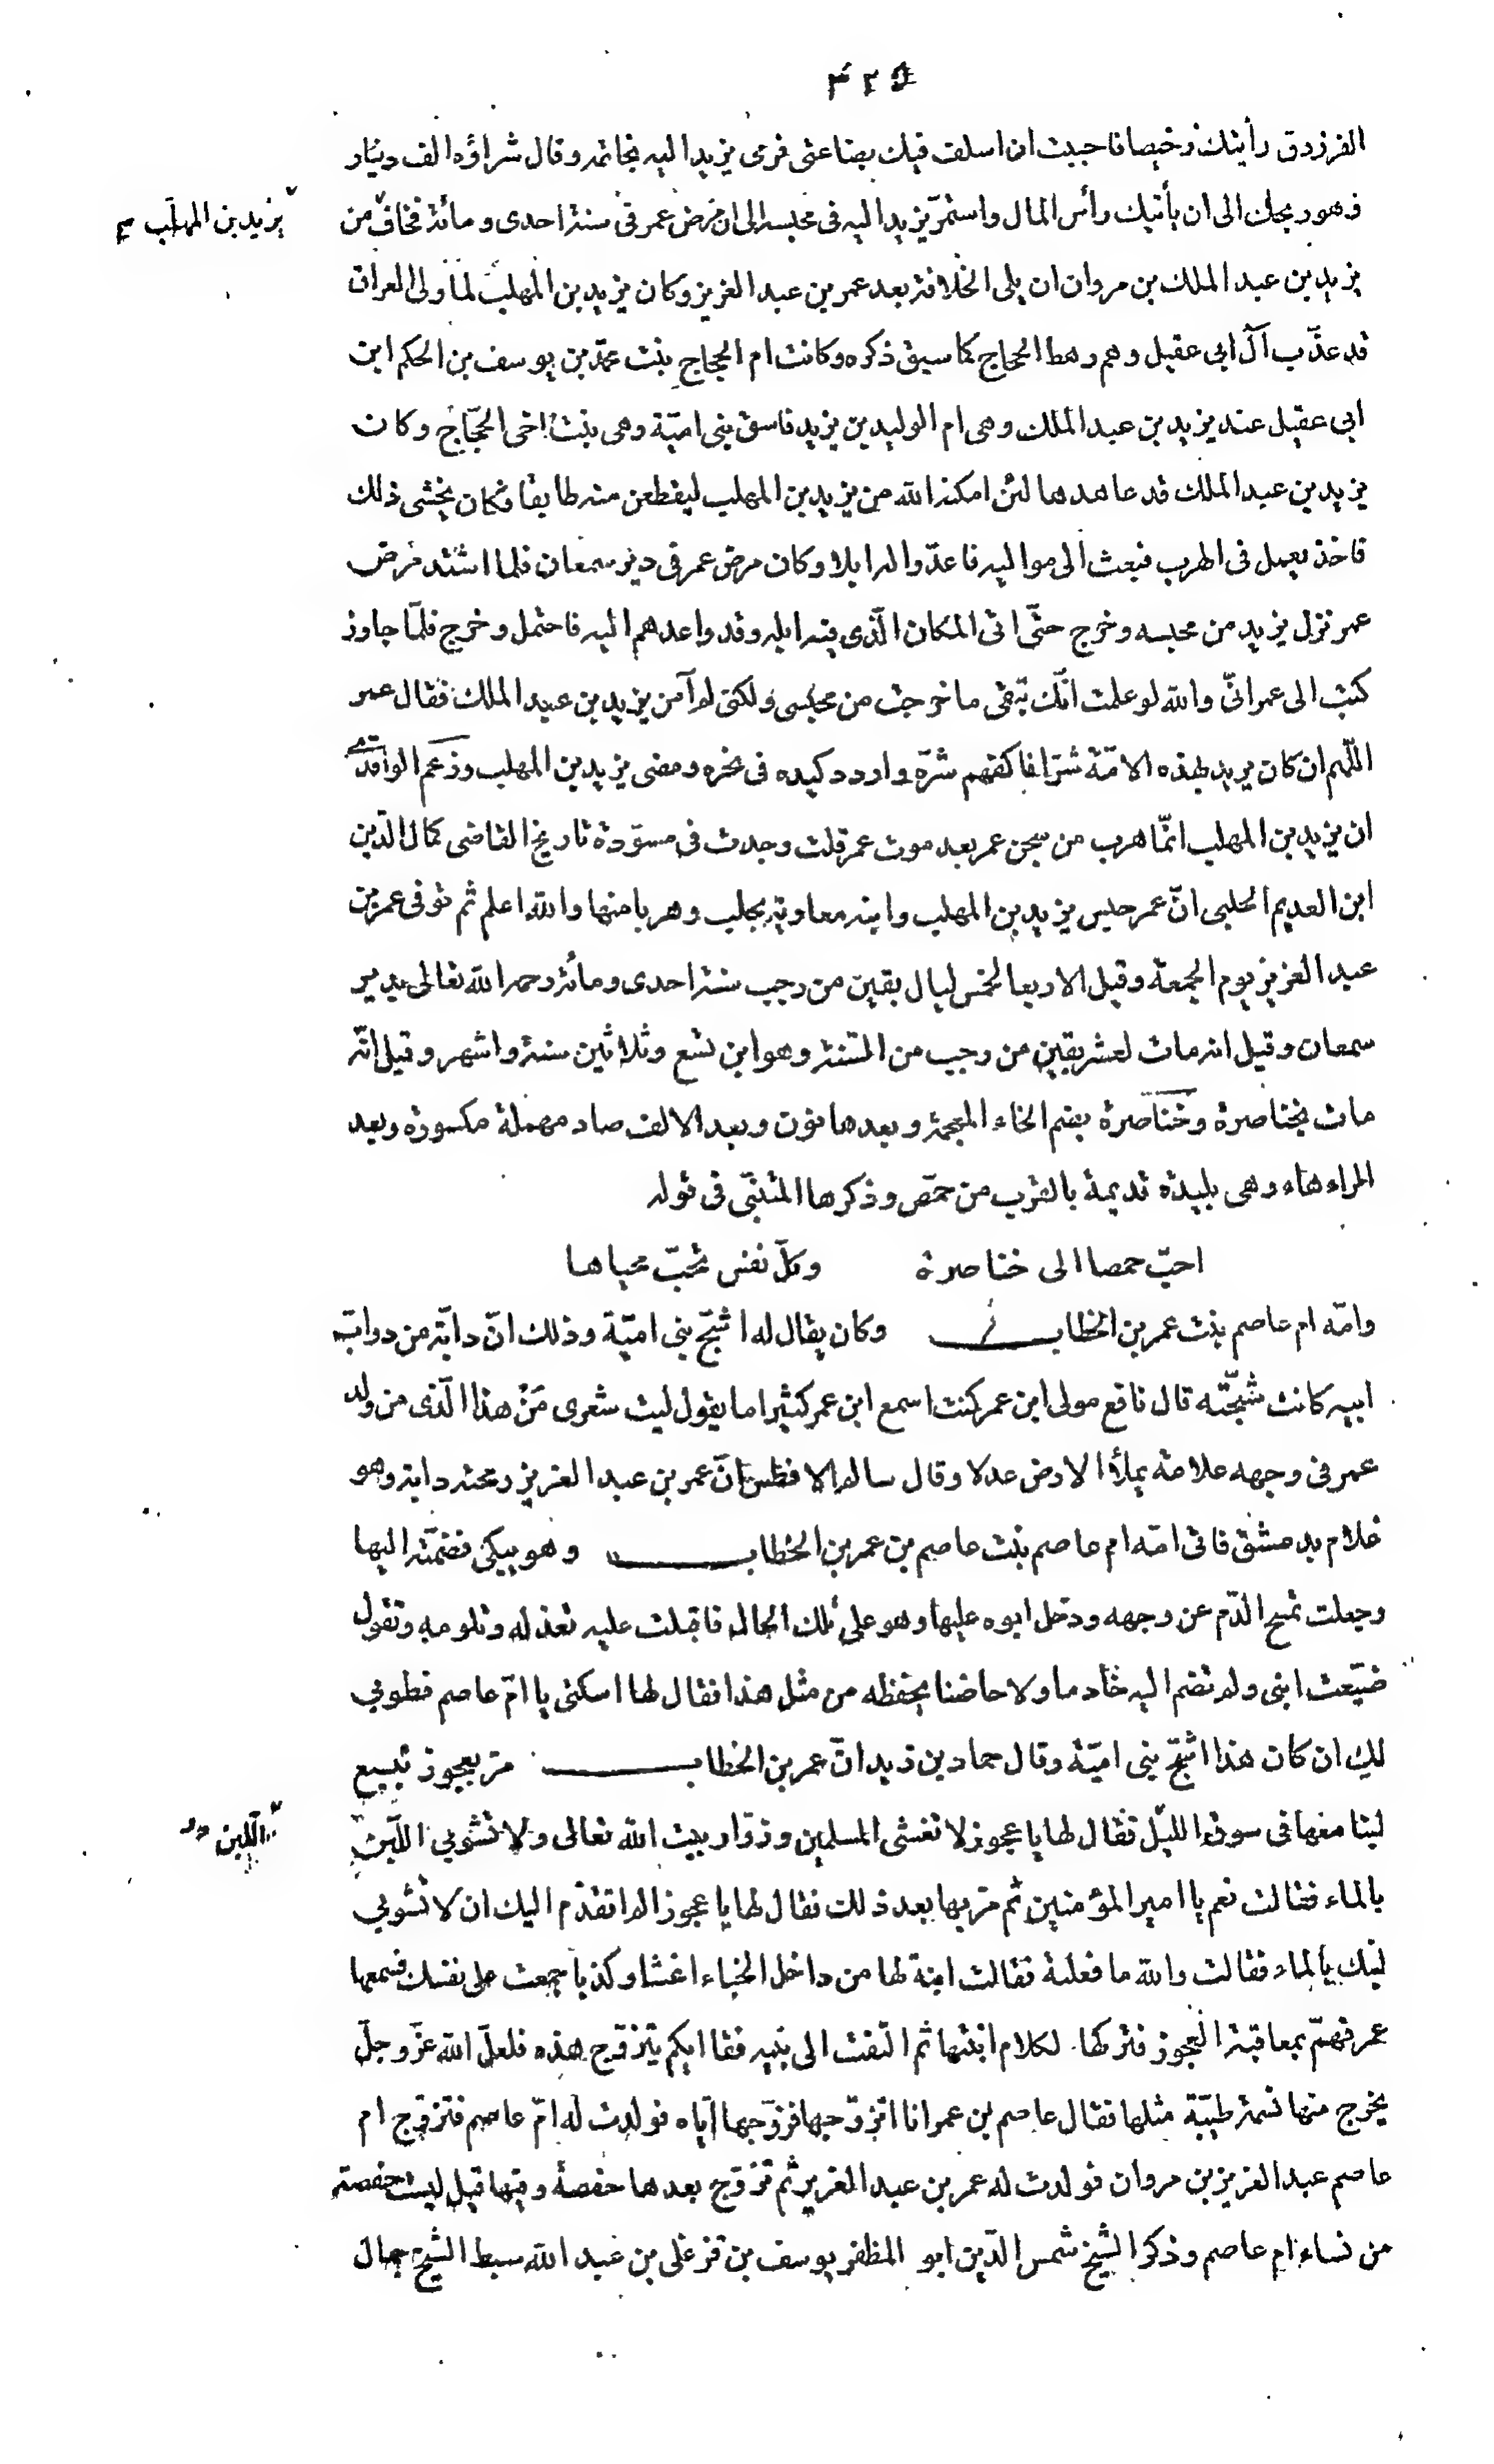 ٣٢٥
الفرزدق رأيتك رخيصا فاحببت ان اسلف فيك بضاعتى فرمى يزيد اليه بخاتمه وقال شراؤه الف دينار
وهو ربحك الى ان يأتيك رأس المال واستمرّ يزيد اليه فى محبسه الى ان مرض عمر فى سنة احدى ومائة فخاف من
يزيد بن المهلّب
يزيد بن عبد الملك بن مروان ان يلى الخلافة بعد عمر بن عبد العزيز وكان يزيد بن المهلب لما ولى العراق
قد عذّب آل ابى عقيل وهم رهط الحجاج كما سبق ذكره وكانت ام الحجاج بنت محمّد بن يوسف بن الحكم ابن
ابى عقيل عند يزيد بن عبد الملك وهى ام الوليد بن يزيد فاسق بنى اميّة وهى بنت اخى الحجّاج وكان
يزيد بن عبد الملك قد عاهدها لئن امكنه الله من يزيد بن المهلب ليقطعن منه طابقا فكان يخشى ذلك
فاخذ يعمل فى الهرب فبعث الى مواليه فاعدّوا له ابلا وكان مرض عمر فى دير سمعان فلما اشتد مرض
عمر نزل يزيد من محبسه وخرج حتّى اتى المكان الّذى فيه ابله وقد واعدهم اليه فاحتمل وخرج فلمّا جاوز
كتب الى عمر انّى والله لو علمت انّك تبقى ما خرجت من محبسى ولكنى لم آمن يزيد بن عبد الملك فقال عمر
اللّهم ان كان يريد لهذه الامّة شرّا فاكفهم شرّه واردد كيده فى نحره ومضى يزيد بن المهلب وزعم الواقدى
ان يزيد بن المهلب انّما هرب من سجن عمر بعد موت عمر قلت وجدت فى مسوّدة تاريخ القاضى كمال الدّين
ابن العديم الحلبى انّ عمر حبس يزيد بن المهلب وابنه معاوية بحلب وهربا منها والله اعلم ثم توفى عمر بن
عبد العزيز يوم الجمعة وقيل الاربعا لخمس ليال بقين من رجب سنة احدى ومائة رحمه الله تعالى بدير
سمعان وقيل انه مات لعشر بقين من رجب من السّنة وهو ابن تسع وثلاثين سنة واشهر وقيل انّه
مات بخناصرة وخناصرة بضم الخاء المعجمة وبعدها نون وبعد الالف صاد مهملة مكسورة وبعد
الراء هاء وهى بليدة قديمة بالقرب من حمص وذكرها المتنبّى فى قوله
احبّ حمصا الى خناصرة وكلّ نفس تحبّ محياها
وامّه ام عاصم بنت عمر بن الخطاب وكان يقال له اشجّ بنى اميّة وذلك انّ دابّة من دوابّ
ابيه كانت شجّته قال نافع مولى ابن عمر كنت اسمع ابن عمر كثيرا ما يقول ليت شعرى مَنْ هذا الّذى من ولد
عمر فى وجهه علامة يملأ الارض عدلا وقال سالم الافطس انّ عمر بن عبد العزيز رمحته دابة وهو
غلام بدمشق فاتى امّه ام عاصم بنت عاصم بن عمر بن الخطاب وهو يبكى فضمّته اليها
وجعلت تمسح الدّم عن وجهه ودخل ابوه عليها وهو على تلك الحال فاقبلت عليه تعذله وتلومه وتقول
ضيّعت ابنى ولم تضم اليه خادما ولا حاضنا يحفظه من مثل هذا فقال لها اسكتى يا امّ عاصم فطوبى
لك ان كان هذا اشجّ بنى اميّة وقال حماد بن زيد انّ عمر بن الخطاب مرّ بعجوز تبيع
لبنا معها فى سوق الليل فقال لها يا عجوز لا تغشى المسلمين وزوّار بيت الله تعالى ولا تشوبى اللّبن
اللّبن
بالماء فقالت نعم يا امير المؤمنين ثم مرّ بها بعد ذلك فقال لها يا عجوز الم اتقدّم اليك ان لا تشوبى
لبنك بالماء فقالت والله ما فعلت فقالت ابنة لها من داخل الخباء اغشا وكذبا جمعت على نفسك فسمعها
عمر فهمّ بمعاقبة العجوز فتركها لكلام ابنتها ثم التفت الى بنيه فقا ايكم يتزوّج هذه فلعلّ الله عزّ وجلّ
يخرج منها نسمة طيبّة مثلها فقال عاصم بن عمر انا اتزوّجها فزوّجها ايّاه فولدت له امّ عاصم فتزوّج ام
عاصم عبد العزيز بن مروان فولدت له عمر بن عبد العزيز ثم تزوّج بعدها حفصة وفيها قيل ليست حفصة
من نساء ام عاصم وذكر الشيخ شمس الدّين ابو المظفر يوسف بن قزغلى بن عبد الله سبط الشيخ جمال